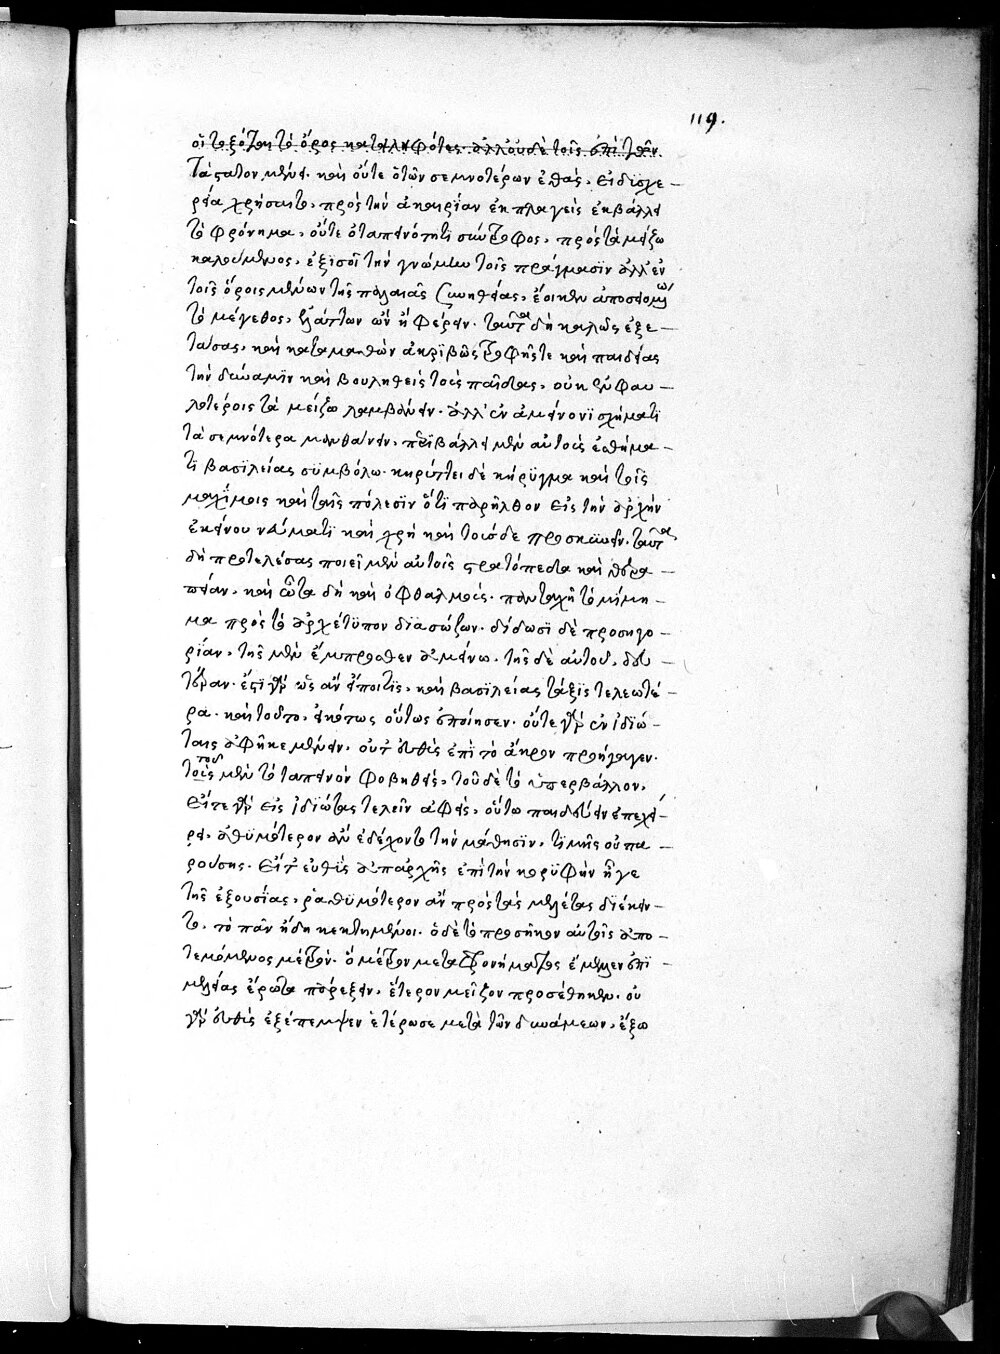 119.
οἱ τοξόται τὸ ὄρος κατειληφότες. ἀλλ' οὐδὲ τοῖς ἐπὶ τῶν
τάξατον μένει. καὶ οὔτε ὁ τῶν σεμνοτέρων ἐθὰς, εἰ δυσχε–
ρείᾳ χρήσαιτο, πρὸς τὴν ἀκαιρίαν ἐκπλαγεὶς ἐκβάλλει
τὸ φρόνημα, οὔτε ὁ ταπεινότητι σύντροφος, πρὸς τὰ μείζω
καλούμενος, ἐξισοῖ τὴν γνώμην τοῖς πράγμασϊν ἀλλ' ἐν
τοῖς ὅροις μένων τῆς παλαιᾶς συνηθείας, ἔοικεν ἀποστομῶν
τὸ μέγεθος, ἐλάττων ὢν ἢ φέρειν. ταῦτα δὴ καλῶς ἐξε–
τάσας, καὶ καταμαθὼν ἀκριβῶς τροφῆς τε καὶ παιδείας
τὴν δύναμϊν καὶ βουληθεὶς τοὺς παῖδας, οὐκ ἐν φαυ–
λοτέροις τὰ μείζω λαμβάνειν. ἀλλ' ἐν ἀμείνονϊ σχήματϊ
τὰ σεμνότερα μανθάνειν, περιβάλλει μὲν αὐτοὺς ἐσθήμα–
τϊ βασϊλείας συμβόλω. κηρύττει δὲ κήρϋγμα καὶ τοῖς
μαχίμοις καὶ ταῖς πόλεσϊν ὅτϊ παρῆλθον εἰς τὴν ἀρχὴν
ἐκείνου νεύματϊ καὶ χρὴ καὶ τούσδε προσκυνεῖν. ταῦτα
δὴ προτελέσας ποιεῖ μὲν αὐτοῖς στρατόπεδα καὶ θερα–
πείαν, καὶ ὦτα δὴ καὶ ὀφθαλμοὺς. πανταχῆ τὸ μίμη–
μα πρὸς τὸ ἀρχέτϋπον διασώζων. δίδωσϊ δὲ προσηγο–
ρίαν, τῆς μὲν ἔμπροσθεν ἀμείνω. τῆς δὲ αὐτοῦ, δευ–
τέραν. ἔστϊ γὰρ ὡς ἂν εἴποιτϊς, καὶ βασϊλείας τάξϊς τελεωτέ–
ρα. καὶ τοῦτο, εἰκότως οὕτως ἐποίησεν. οὔτε γὰρ ἐν ἰδϊώ–
ταις ἀφῆκε μένειν. οὔτ' εὐθὺς ἐπὶ τὸ ἄκρον προήγαγεν.
τοῦ
τοῖς μὲν τὸ ταπεινὸν φοβηθεὶς, τοῦ δὲ τὸ ὑπερβάλλον.
εἴτε γὰρ εἰς ἰδϊώτας τελεῖν ἀφεὶς, οὕτω παιδεύειν ἐπεχεί–
ρει, ἀθϋμότερον ἂν ἐδέχοντο τὴν μάθησϊν, τϊμῆς οὐ πα–
ρούσης. εἴτ' εὐθὺς ἀπαρχῆς ἐπὶ τὴν κορϋφὴν ἦγε
τῆς ἐξουσίας, ῥᾳθϋμότερον ἂν πρὸς τὰς μελέτας διέκειν–
το, τὸ πᾶν ἤδη κεκτημένοι. ὁ δὲ τὸ προσῆκον αὐτοῖς ἀπο–
τεμόμενος μέτρον. ὃ μέτρον μετὰ φρονήματος ἔμελλεν ἐπϊ–
μελείας ἔρωτα παρέξειν, ἕτερον μεῖζον προσέθηκεν. οὐ
γὰρ εὐθὺς ἐξέπεμψεν ἑτέρωσε μετὰ τῶν δυνάμεων, ἔξω